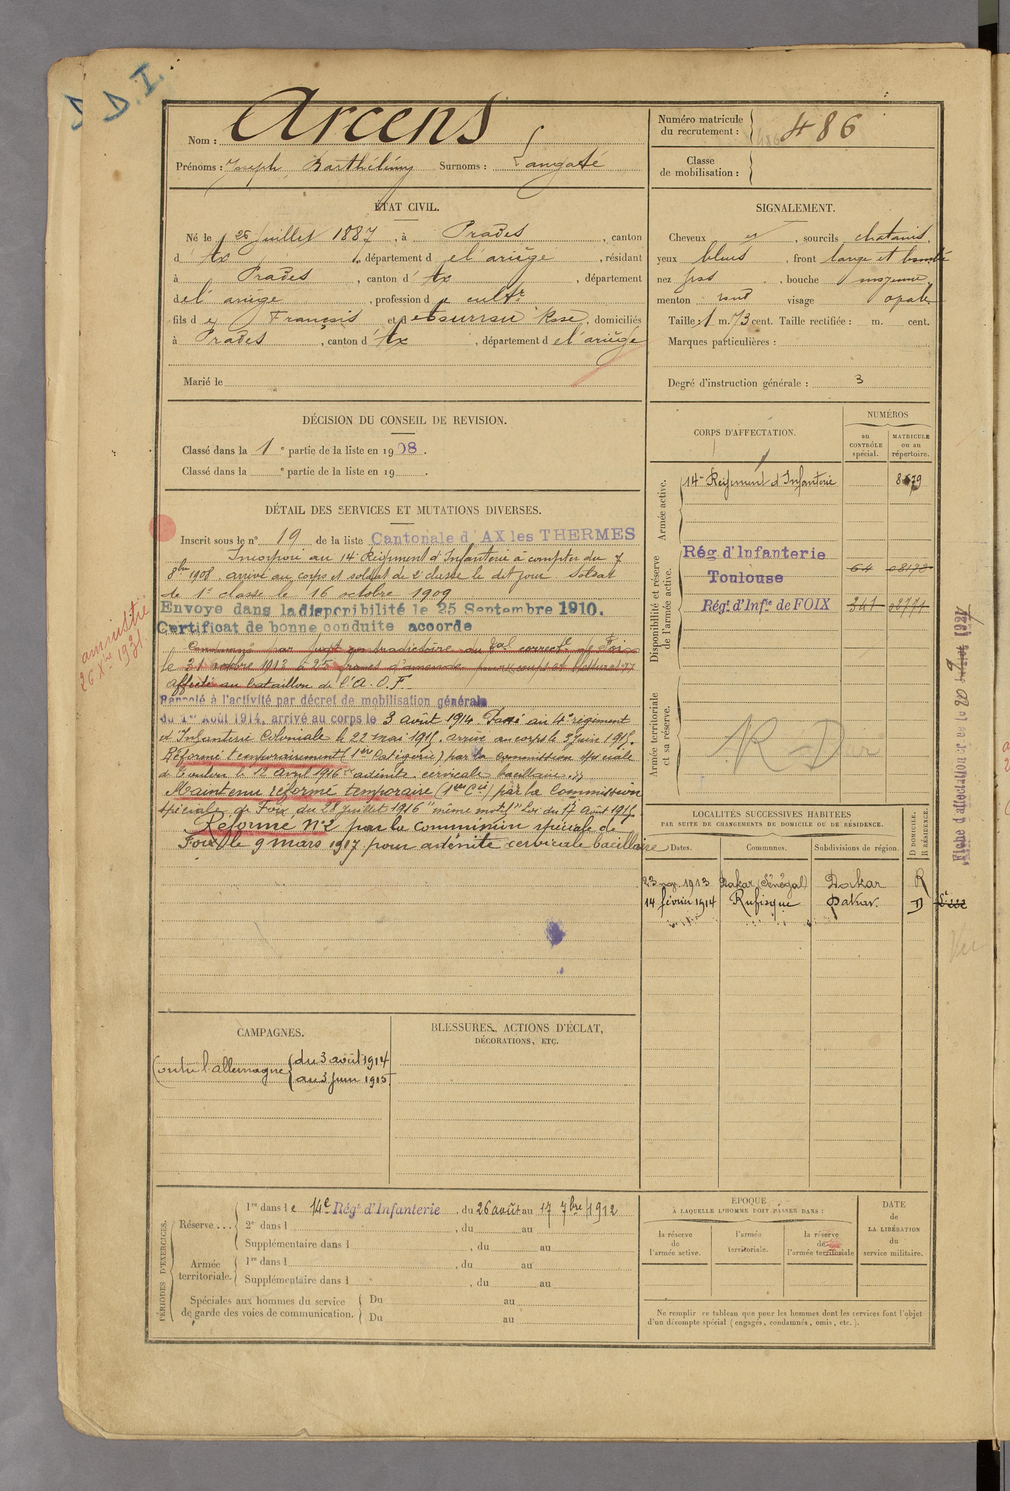 D D.I.
Nom : Arcens
Prénoms : Joseph Barthélémy Surnoms : Langaté
Numéro matricule
du recrutement : 486
Classe
de mobilisation :
ÉTAT CIVIL.
Né le 26 Juillet 1887, à Prades, canton
d'Ax, département de l'ariège, résidant
à Prades, canton d'Ax, département
de l'ariège, profession de cultr
fils de François et d Rose, domiciliés
à Prades, canton d'Ax, département de l'ariège
Marié le
SIGNALEMENT.
Cheveux et, sourcils chatains,
yeux bleus, front large et bombé
nez gros, bouche moyenne,
menton rond visage opale
Taille : 1 m. 73 cent. Taille rectifiée : m. cent.
Marques particulières :
Degré d'instruction générale : 3
DÉCISION DU CONSEIL DE REVISION.
Classé dans la 1e partie de la liste en 1908.
Classé dans la e partie de la liste en 19
CORPS D'AFFECTATION.
NUMÉROS
au
CONTRÔLE
spécial.
MATRICULE
ou au
répertoire.
Armée active.
14e Régiment d'Infanterie
Disponibilité et réserve
de l'armée active.
Rég. d'Infanterie
Toulouse
64 08178
Régt. d'Infie de FOIX 341
Armée territoriale
et sa réserve.
DÉTAIL DES SERVICES ET MUTATIONS DIVERSES.
Inscrit sous le n° 19 de la liste Cantonale d'AX les THERMES
Incorporé au 14e Régiment d'Infanterie à compter du 7
8bre 1908. arrivé au corps et soldat de 2e classe le dit jour. Soldat
de 1e classe le 16 octobre 1909
Envoyé dans la disponibilité le 25 Septembre 1910.
Certificat de bonne conduite accordé
Condamné par jugt contradictoire du Tal correctl de Foix
le 31 octobre 1912 à 25 francs d'amende pour coups et blessures
Affecté au bataillon de l'A.O.F.
Rappelé à l'activité par décret de mobilisation générale
du 1er Août 1914, arrivé au corps le 3 août 1914. Passé au 4e régiment
d'Infanterie Coloniale le 22 mai 1915. arrivé au corps le 3 juin 1915.
Réformé temporairement (1ère Catégorie) par la commission spéciale
de Toulon le 12 avril 1916 adénite cervicale bacillaire
Maintenu réformé temporaire (1ère Cie) par la Commission
spéciale de Foix du 28 juillet 1916 "même motif" Loi du 17 août 1915
Réformé N°2 par la commission spéciale de
Foix le 9 mars 1917 pour adénite cervicale bacillaire
amnistié
26 Xbre 1931
LOCALITÉS SUCCESSIVES HABITÉES
PAR SUITE DE CHANGEMENTS DE DOMICILE OU DE RÉSIDENCE.
Dates. Communes. Subdivisions de région. D DOMICILE. R RÉSIDENCE.
23 nov. 1913 Dakar (Sénégal) Dakar R
14 février 1914 Rufisque Dakar D
CAMPAGNES.
Contre l'allemagne du 3 août 1914
au 3 Juin 1915
BLESSURES, ACTIONS D'ÉCLAT,
DÉCORATIONS, ETC.
PÉRIODES D'EXERCICES.
Réserve ...
1re dans le 14e Régt d'Infanterie, du 26 août au 17 7bre 1912
2e dans l , du au
Supplémentaire dans l , du au
Armée
territoriale.
1re dans l , du au
Supplémentaire dans l , du au
Spéciales aux hommes du service
de garde des voies de communication.
Du au
Du au
EPOQUE
À LAQUELLE L'HOMME DOIT PASSER DANS :
la réserve
de
l'armée active.
l'armée
territoriale.
la réserve
de
l'armée territoriale
DATE
de
LA LIBÉRATION
du
service militaire.
Ne remplir ce tableau que pour les hommes dont les services font l'objet
d'un décompte spécial (engagés, condamnés, omis, etc.).